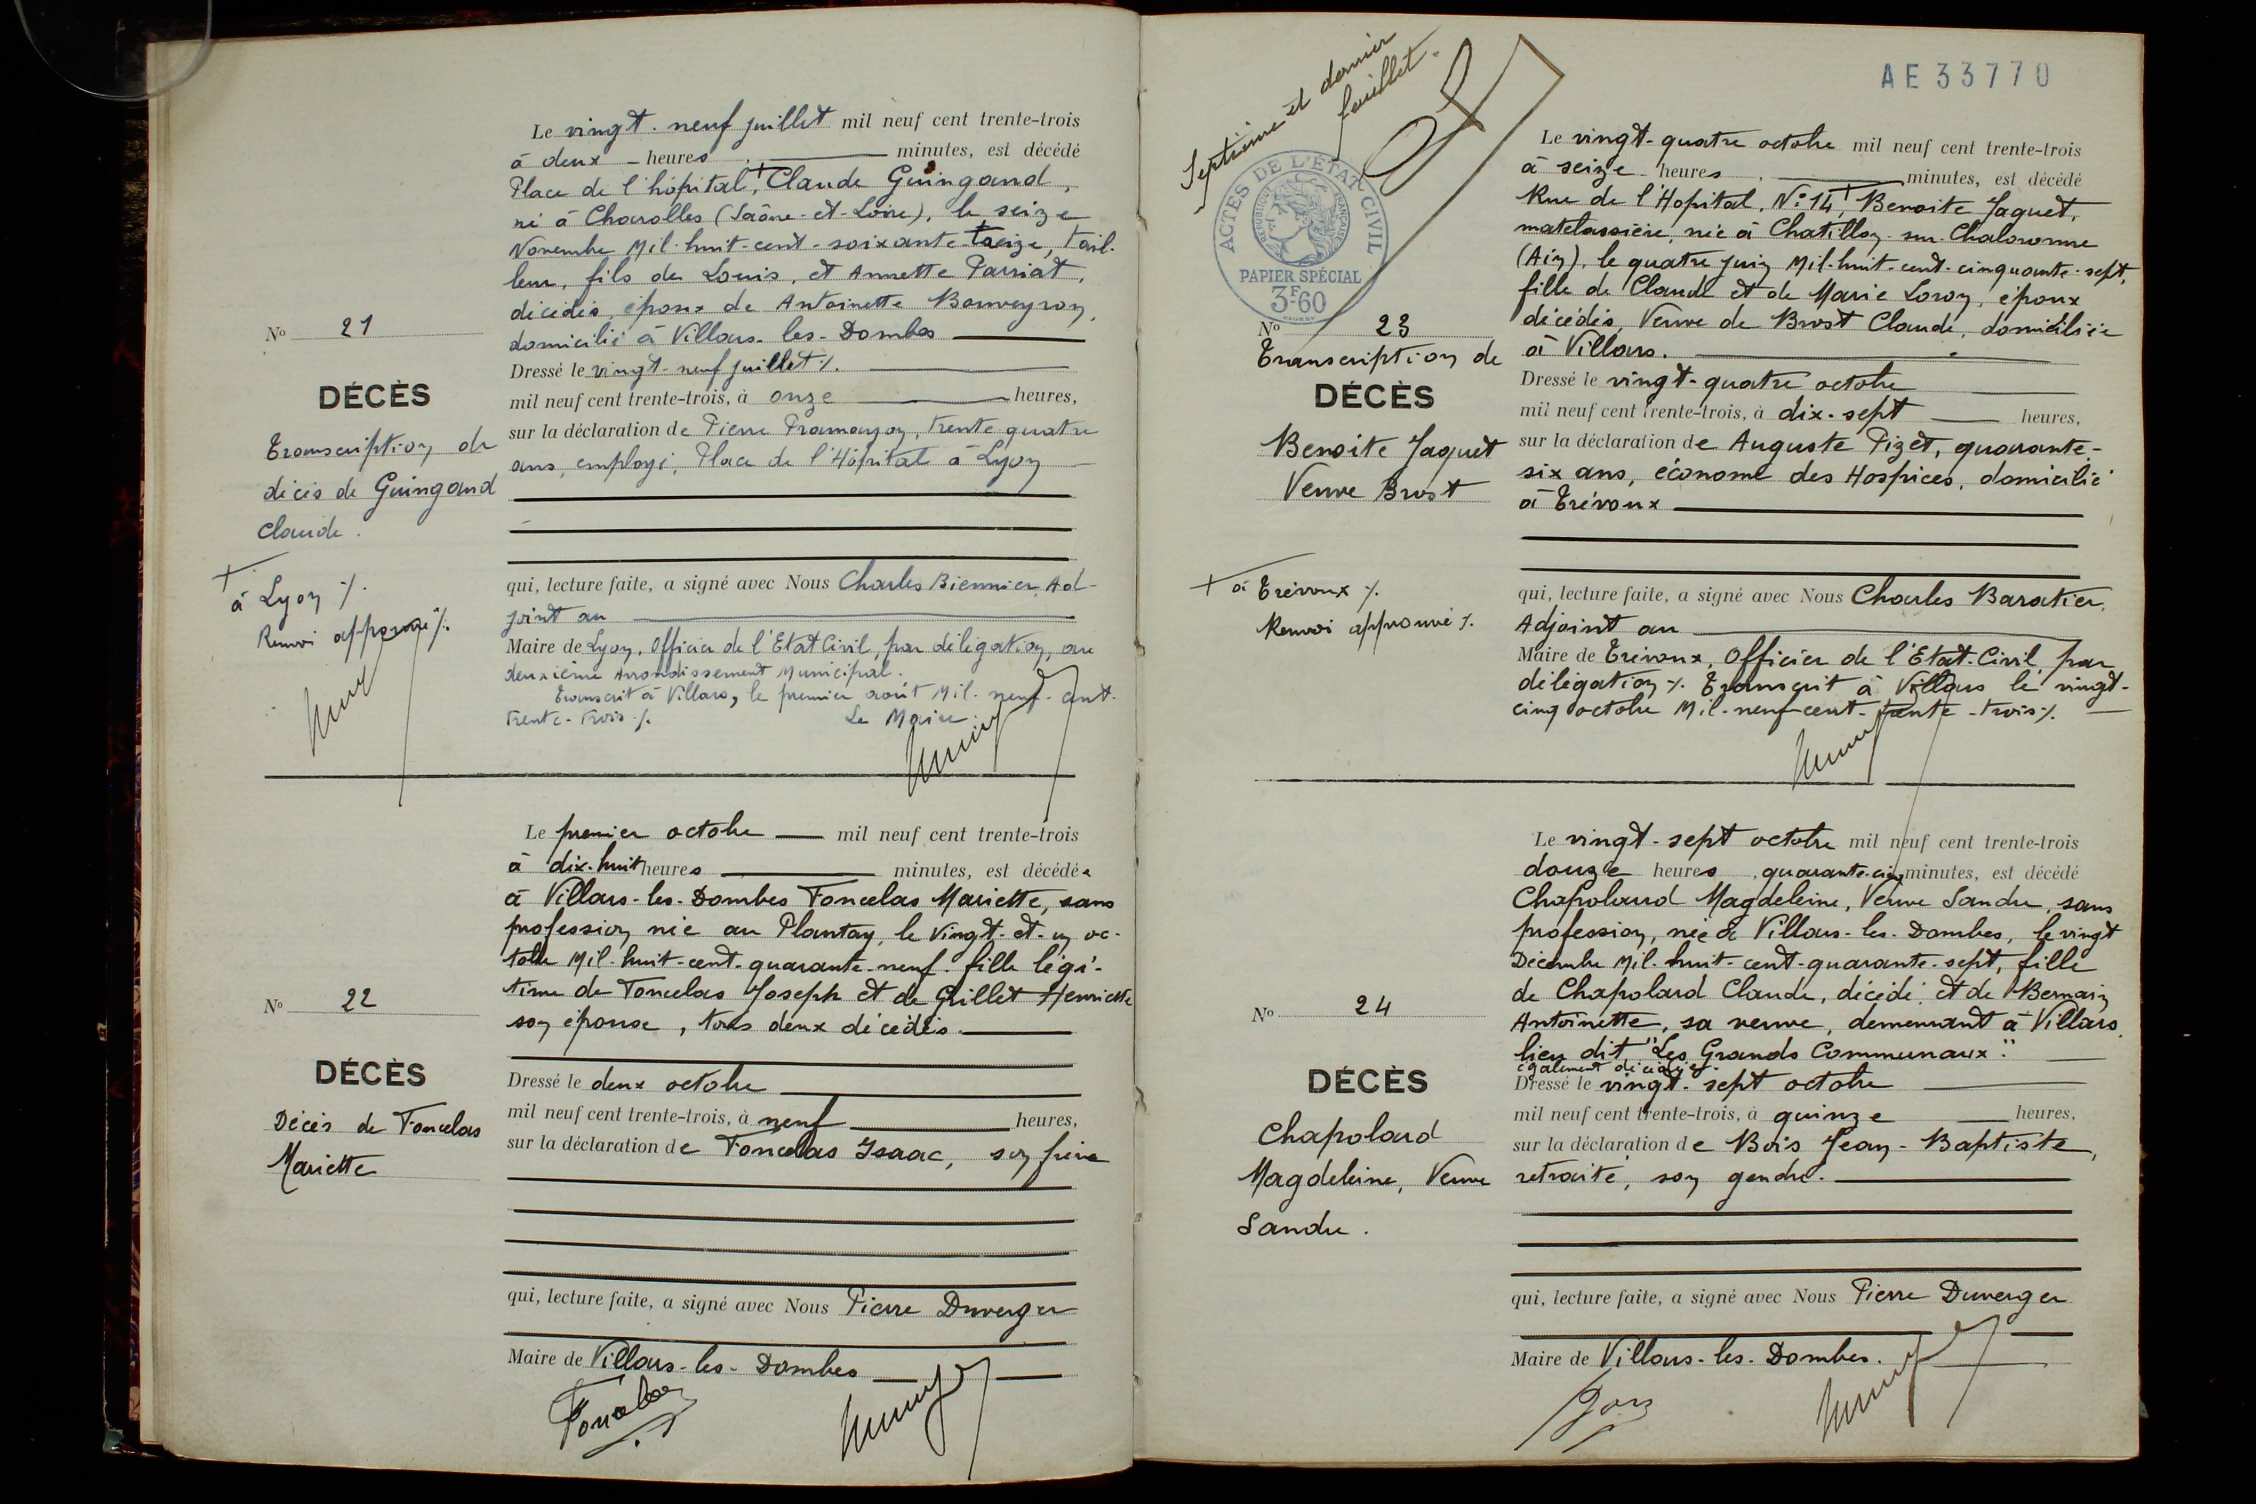 Le vingt-neuf juillet mil neuf cent trente-trois
à deux - heures minutes, est décédé
Place de l'hôpital, + Claude Guingand,
né à Charolles (Saône-et-Loire), le seize
Novembre Mil-huit-cent-soixante-treize, tail-
leur, fils de Louis, et Annette Parriat,
décédés, époux de Antoinette Bouveyron,
domicilié à Villars-les-Dombes
No 21
Dressé le vingt-neuf juillet ./.
DÉCÈS
mil neuf cent trente-trois, à onze heures,
sur la déclaration de Pierre Pramonzon, trente quatre
ans, employé, Place de l'Hôpital à Lyon
Transcription de
décès de Guingand
Claude.
+ à Lyon ./.
Renvoi approuvé ./.
qui, lecture faite, a signé avec Nous Charles Biennier, Ad-
joint au
Maire de Lyon, Officier de l'Etat Civil, par délégation, au
deuxième Arrondissement Municipal.
Transcrit à Villars, le premier août Mil-neuf-cent-
trente-trois ./. Le Maire
Le premier octobre mil neuf cent trente-trois
à dix-huit heures minutes, est décédée
à Villars-les-Dombes Foncelas Mariette, sans
profession née au Plantay, le vingt-et-un oc-
tobre Mil-huit-cent-quarante-neuf. fille légi-
time de Foncelas Joseph et de Grillet Henriette
son épouse, tous deux décédés.
No 22
DÉCÈS
Décès de Foncelas
Mariette
Dressé le deux octobre
mil neuf cent trente-trois, à neuf heures,
sur la déclaration de Foncelas Isaac, son frère
qui, lecture faite, a signé avec Nous Pierre Duverger
Maire de Villars-les-Dombes
Foncelas
Septième et dernier
feuillet.
AE 33770
ACTES DE L'ETAT CIVIL
REPUBLIQUE FRANÇAISE
PAPIER SPÉCIAL
3F60
Le vingt-quatre octobre mil neuf cent trente-trois
à seize heures minutes, est décédé
Rue de l'Hopital, No 14, + Benoite Jaquet,
matelassière, née à Chatillon-sur-Chalaronne
(Ain), le quatre juin Mil-huit-cent-cinquante-sept,
fille de Claude et de Marie Loron, époux
décédés, Veuve de Brost Claude, domiciliée
à Villars.
No 23
Transcription de
DÉCÈS
Benoite Jaquet
Veuve Brost
Dressé le vingt-quatre octobre
mil neuf cent trente-trois, à dix-sept heures,
sur la déclaration de Auguste Pizet, quarante-
six ans, économe des Hospices, domicilié
à Trévoux
+ à Trévoux ./.
Renvoi approuvé ./.
qui, lecture faite, a signé avec Nous Charles Baratier,
Adjoint au
Maire de Trévoux, Officier de l'Etat-Civil, par
délégation ./. Transcrit à Villars le vingt-
cinq octobre Mil-neuf-cent-trente-trois ./.
Le vingt-sept octobre mil neuf cent trente-trois
douze heures quarante-cinq minutes, est décédé
Chapoland Magdeleine, Veuve Sandre, sans
profession, née à Villars-les-Dombes, le vingt
Décembre Mil-huit-cent-quarante-sept, fille
de Chapolard Claude, décédé, et de Bernain
Antoinette, sa veuve, demeurant à Villars
lieu dit, "Les Grands Communaux".
également décédée.
No 24
DÉCÈS
Chapoland
Magdeleine, Veuve
Sandre.
Dressé le vingt-sept octobre
mil neuf cent trente-trois, à quinze heures,
sur la déclaration de Bois Jean-Baptiste,
retraité, son gendre.
qui, lecture faite, a signé avec Nous Pierre Duverger
Maire de Villars-les-Dombes.